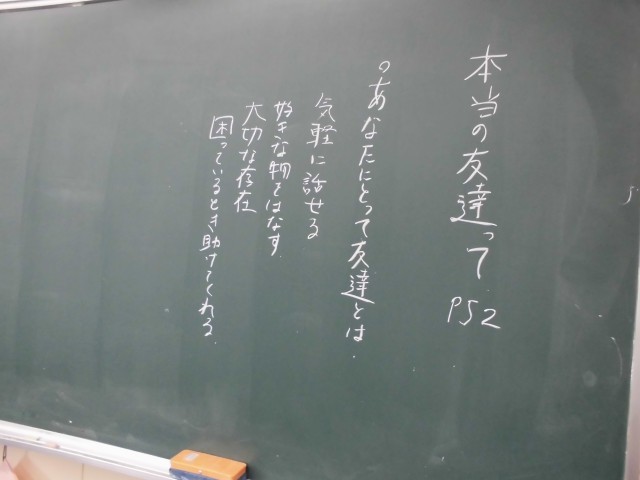 本当の友達って P52
○あなたにとって友達とは.
気軽に話せる
好きな物をはなす.
大切な存在
困っているとき助けてくれる.